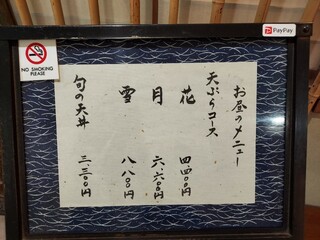 お昼のメニュー
天ぷらコース
花 四、四〇〇円
月 六、六〇〇円
雪 八八〇〇円
旬の天丼 三、三〇〇円
NO SMOKING
PLEASE
PayPay